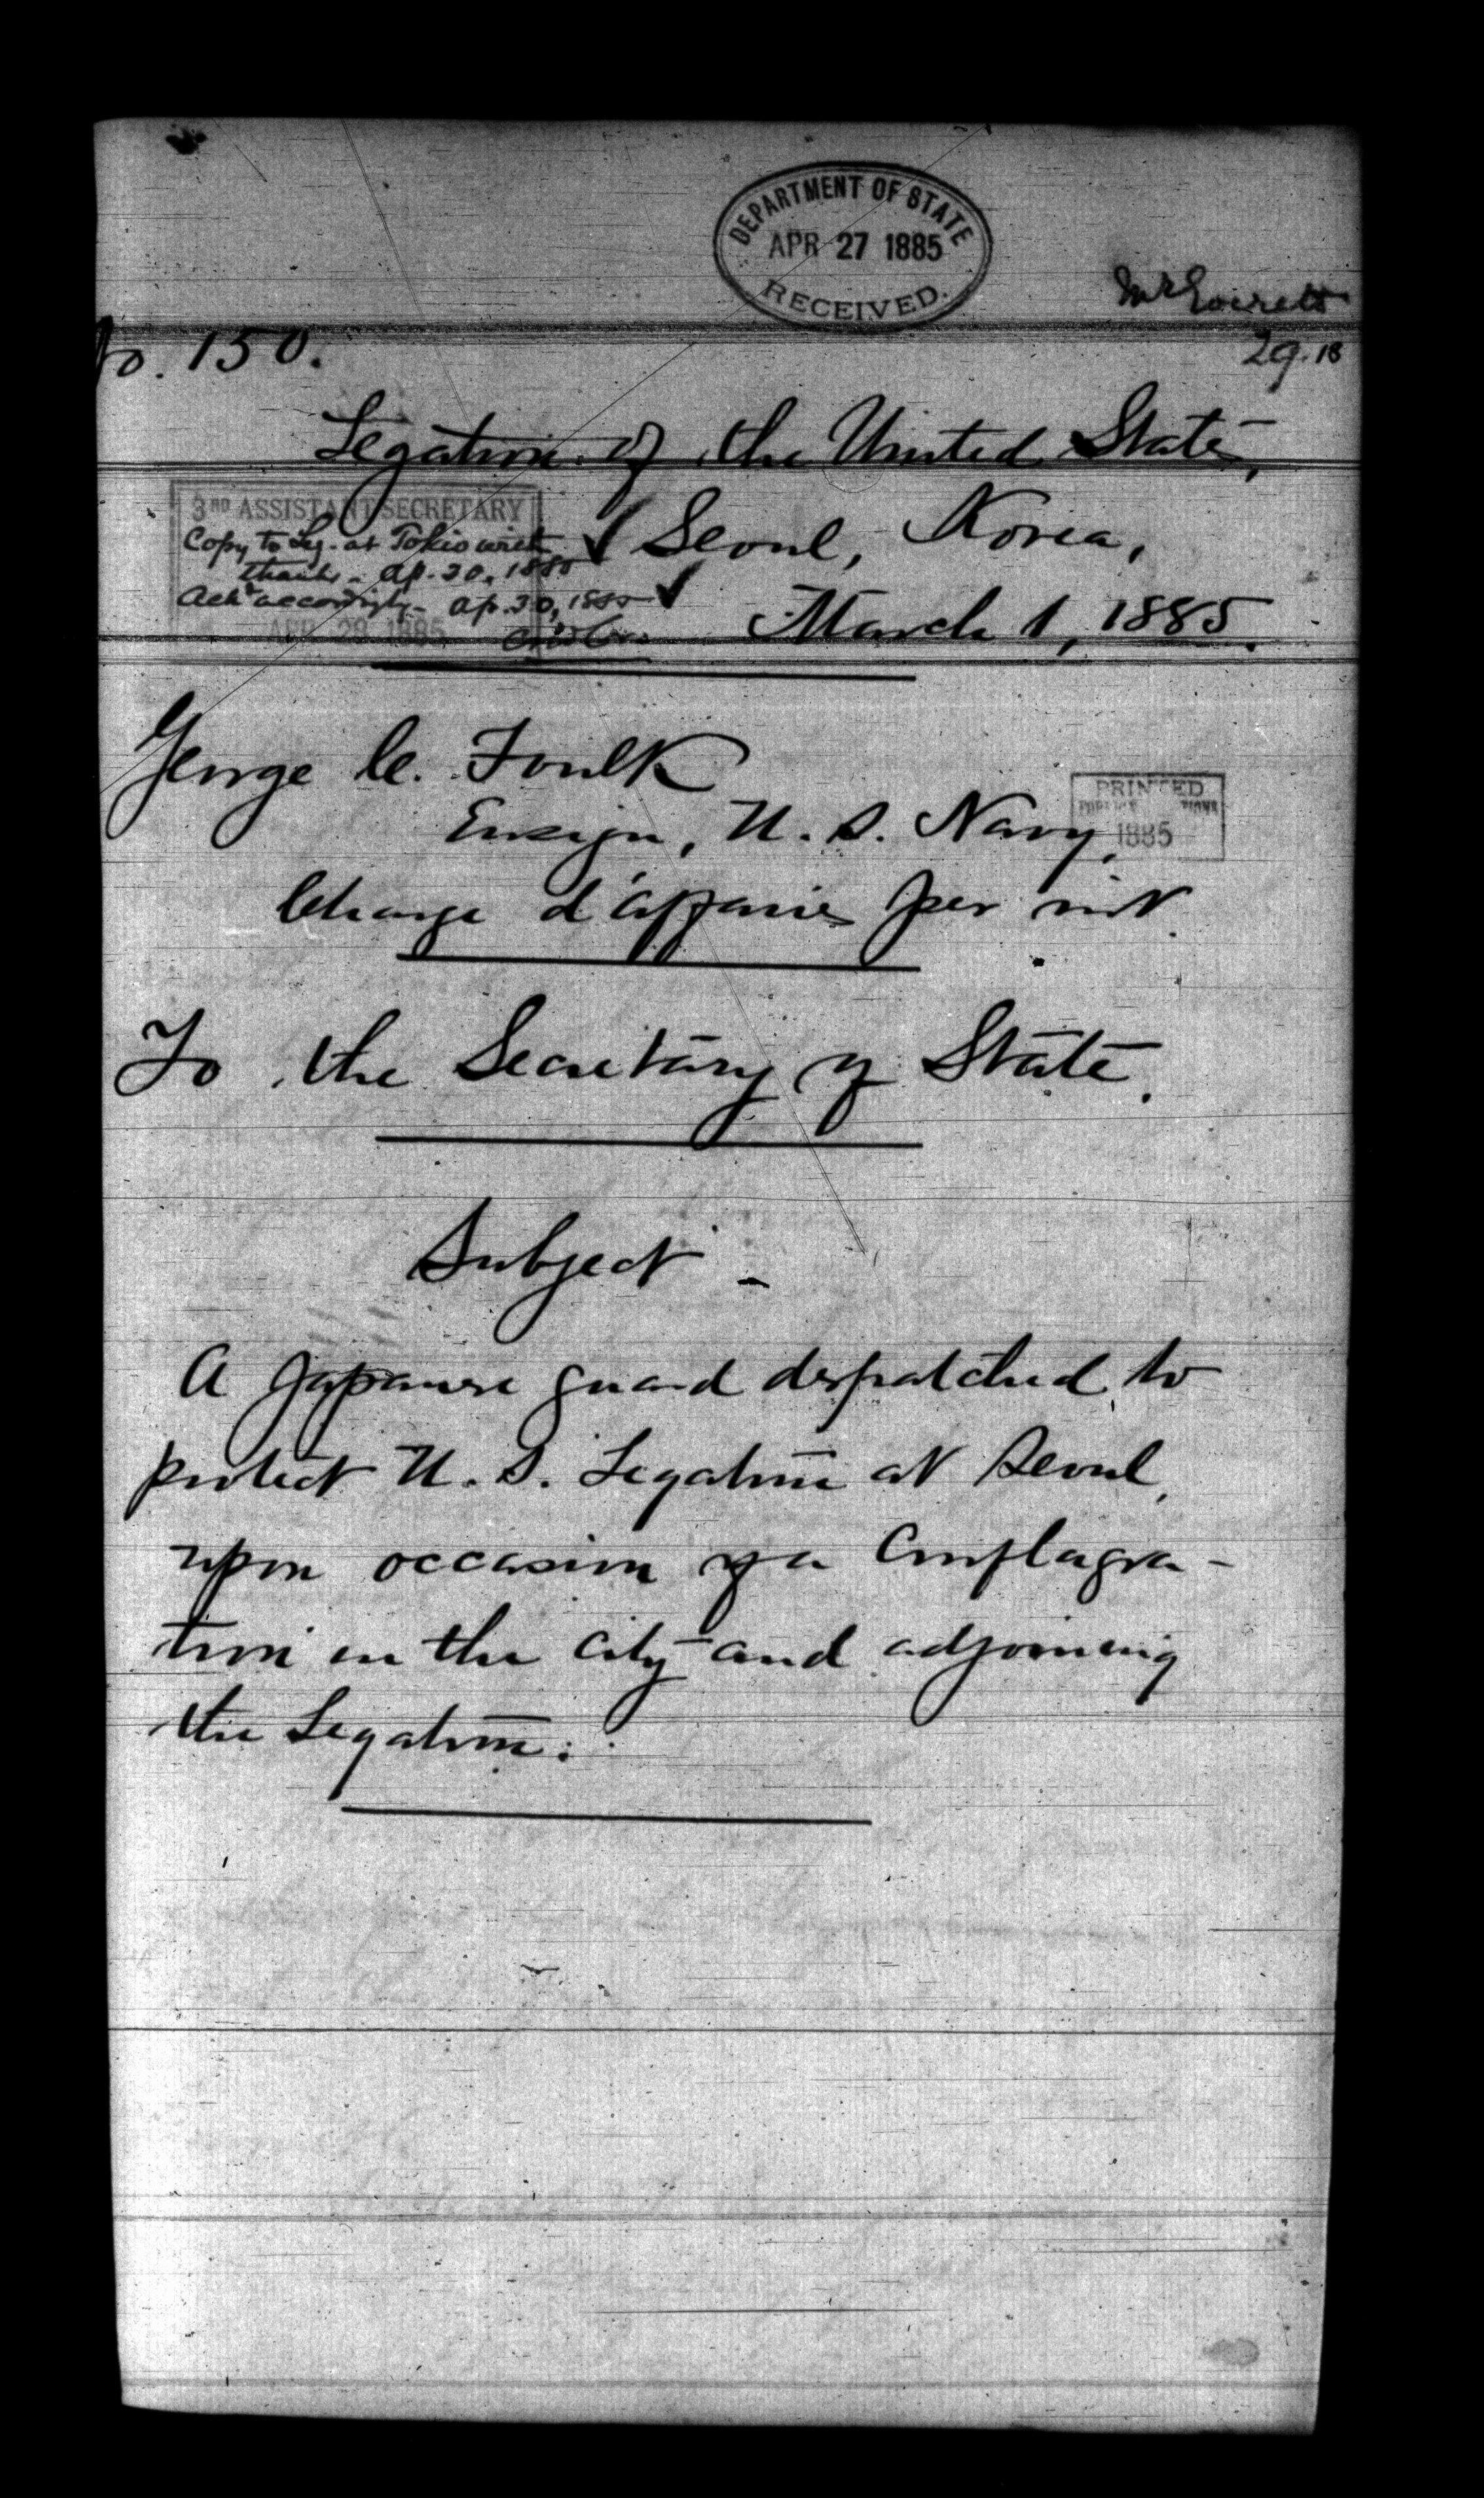 DEPARTMENT OF STATE
APR 27 1885
RECEIVED.
Mr Everett
29.18
No. 150.
Legation of the United States,
3RD ASSISTANT SECRETARY
Copy to Leg. at Tokio with
thanks - Ap. 30, 1885
Ackd accordingly - Ap. 30, 1885
APR 29 1885
Seoul, Korea,
March 1, 1885.
George C. Foulk
Ensign, U. S. Navy,
Charge d'affaires per int.
PRINTED
1885
To the Secretary of State.
Subject -
A Japanese guard despatched to
protect U. S. Legation at Seoul,
upon occasion of a conflagra-
tion in the city and adjoining
the Legation.